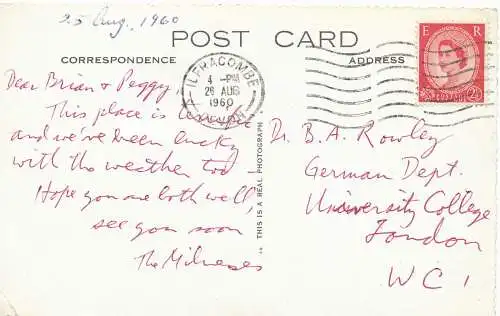 25 Aug. 1960
POST CARD
CORRESPONDENCE
ADDRESS
ILFRACOMBE
4 - PM
26 AUG
1960
DEVON
E R
POSTAGE
2½
Dear Brian & Peggy,
This place is
and we've been lucky
with the weather too -
Hope you are both well,
see you soon
The Milneses
"THIS IS A REAL PHOTOGRAPH"
Dr. B. A. Rowley
German Dept.
University College
London
WC1